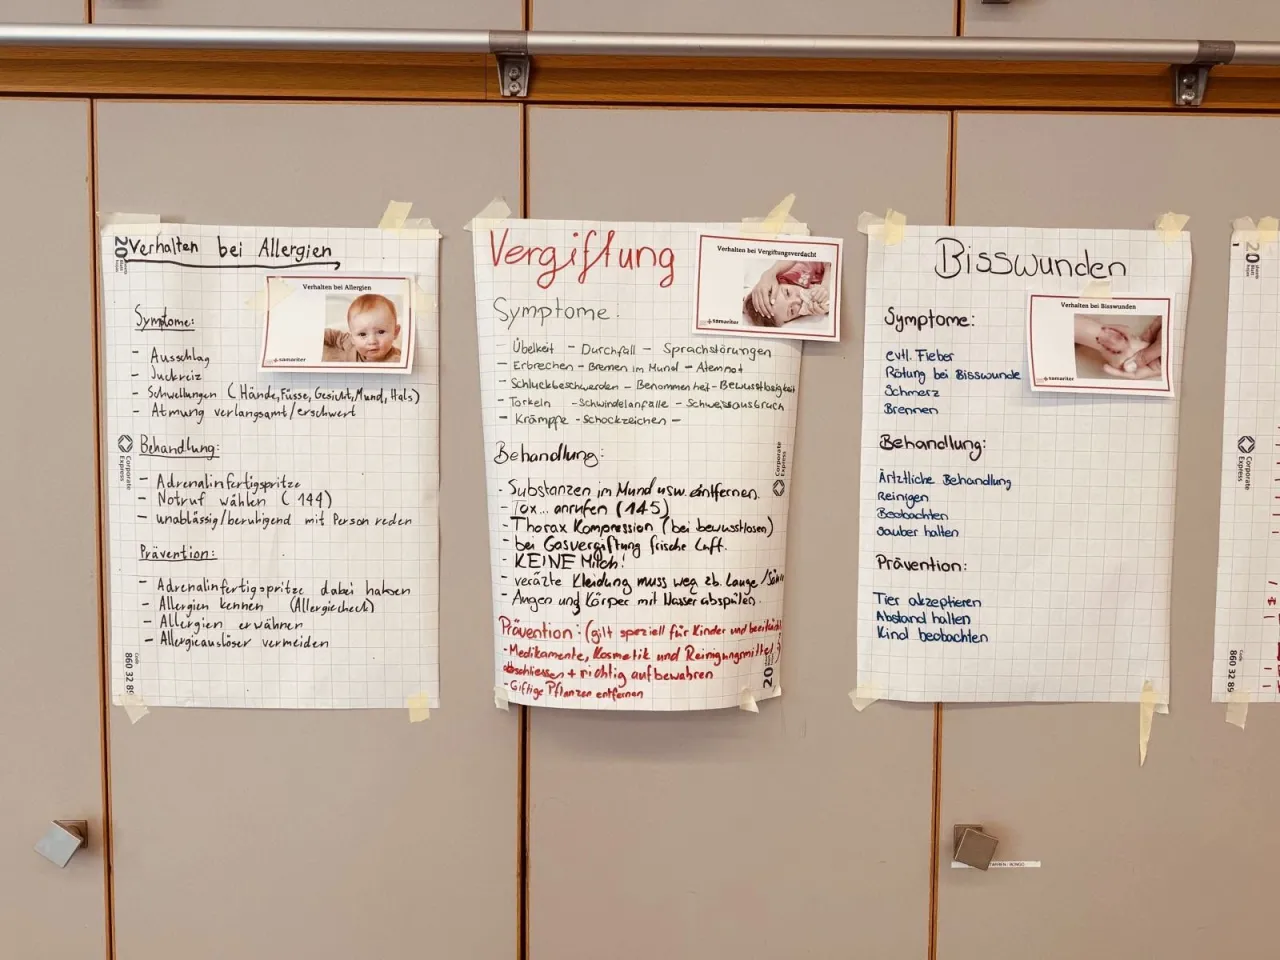 Verhalten bei Allergien
Verhalten bei Allergien
samariter
Symptome:
- Ausschlag
- Juckreiz
- Schwellungen (Hände, Füsse, Gesicht, Mund, Hals)
- Atmung verlangsamt/erschwert
Behandlung:
- Adrenalinfertigspritze
- Notruf wählen (144)
- unablässig/beruhigend mit Person reden
Prävention:
- Adrenalinfertigspritze dabei haben
- Allergien kennen (Allergiecheck)
- Allergien erwähnen
- Allergieauslöser vermeiden
20
Corporate
Express
Code
860 32 89
Vergiftung
Verhalten bei Vergiftungsverdacht
samariter
Symptome:
- Übelkeit - Durchfall - Sprachstörungen
- Erbrechen - Brennen im Mund - Atemnot
- Schluckbeschwerden - Benommenheit - Bewusstlosigkeit
- Torkeln - Schwindelanfälle - Schweissausbruch
- Krämpfe - Schockzeichen -
Behandlung:
- Substanzen im Mund usw. entfernen.
- Tox... anrufen (145)
- Thorax Kompression (bei bewusstlosen)
- bei Gasvergiftung frische Luft.
- KEINE Milch!
- veräzte Kleidung muss weg zb. Lauge/
- Augen und Körper mit Wasser abspülen.
Prävention: (gilt speziell für Kinder und
- Medikamente, Kosmetik und Reinigungsmittel
abschliessen + richtig aufbewahren
- Giftige Pflanzen entfernen
Corporate
Express
20
Bisswunden
Verhalten bei Bisswunden
samariter
Symptome:
evtl. Fieber
Rötung bei Bisswunde
Schmerz
Brennen
Behandlung:
Ärtztliche Behandlung
Reinigen
Beobachten
sauber halten
Prävention:
Tier akzeptieren
Abstand halten
Kind beobachten
20
Corporate
Express
Code
860 32 89